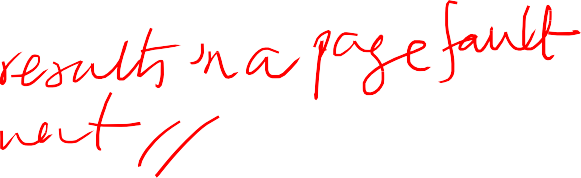 results in a page fault
next //